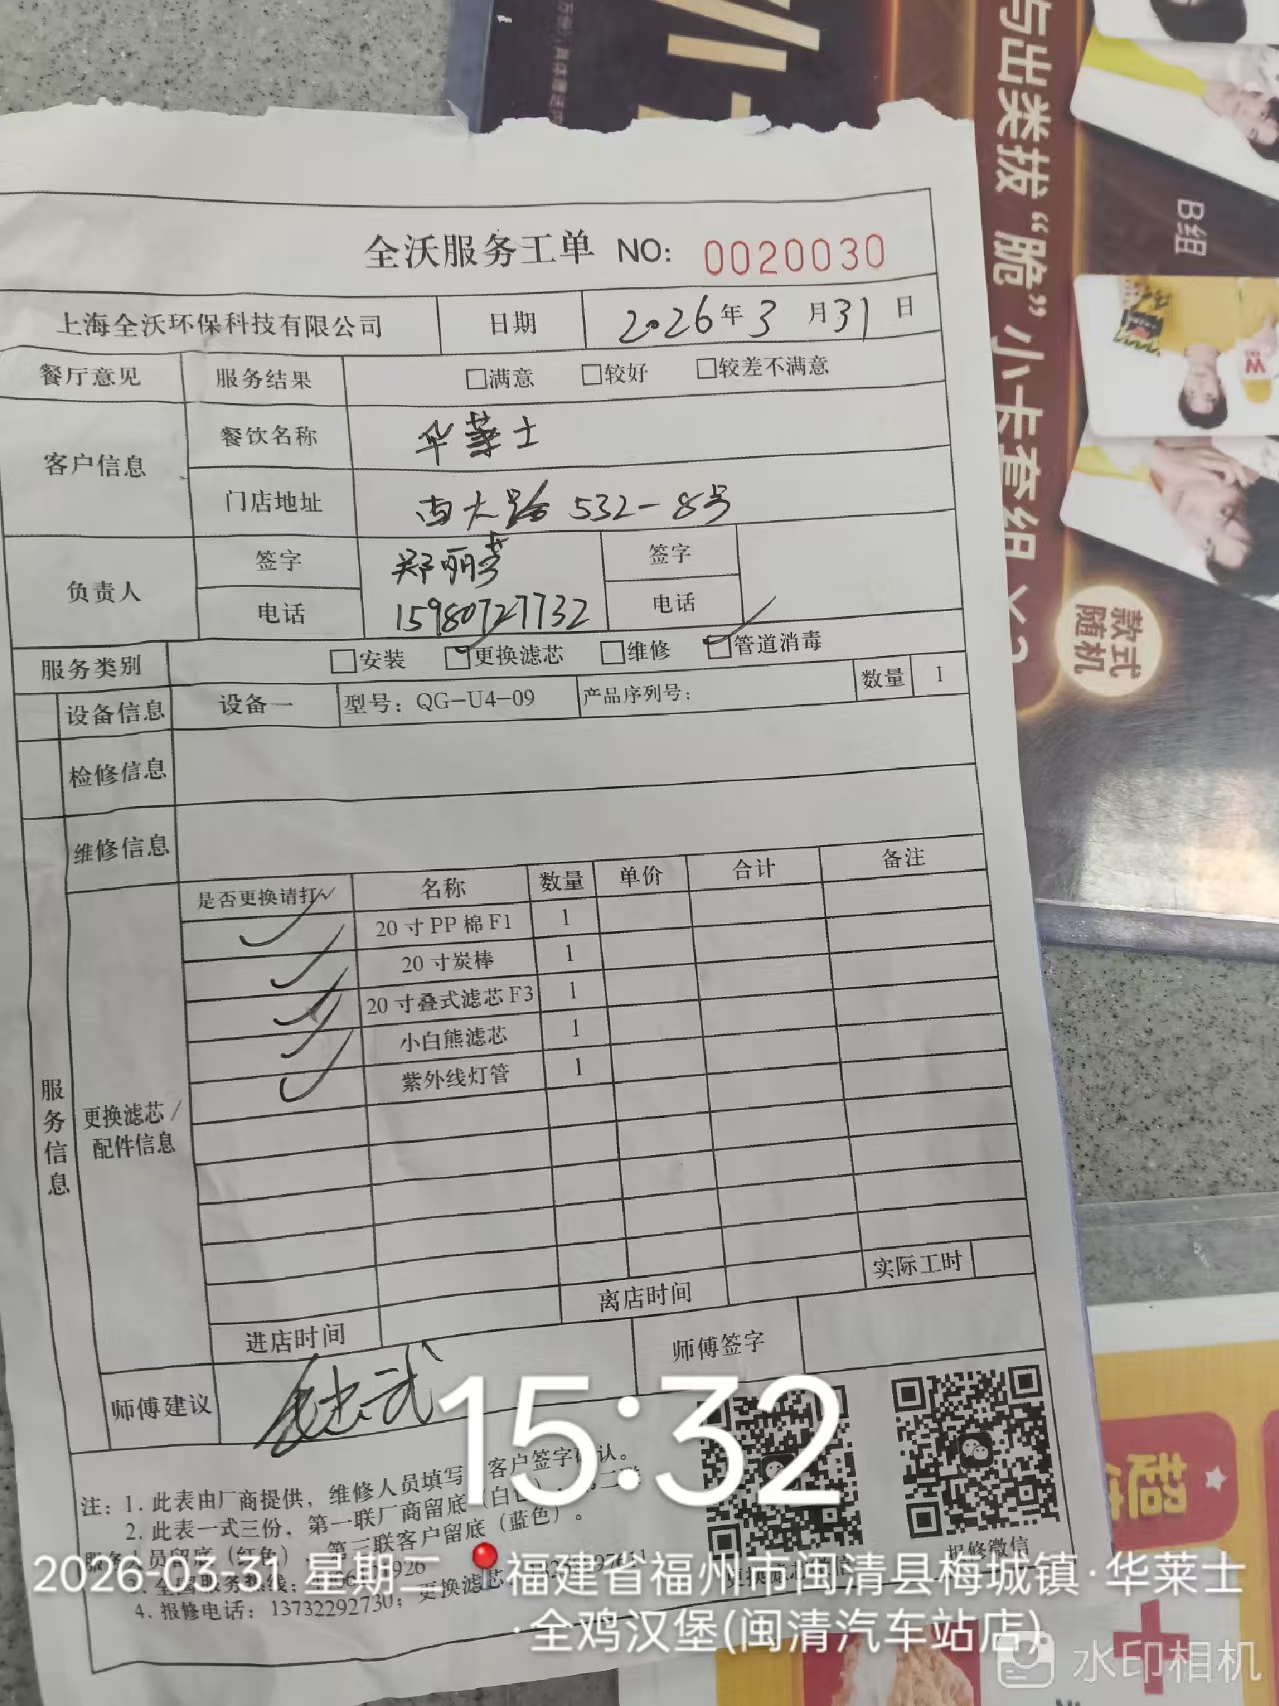 与出类拔“脆”小卡套组
B组
款式
随机
全沃服务工单 NO: 0020030
上海全沃环保科技有限公司 日期 2026年3月31日
餐厅意见 服务结果 □满意 □较好 □较差不满意
客户信息 餐饮名称 华莱士
门店地址 南大路532-8号
负责人 签字 郑丽芳 签字
电话 15980727732 电话
服务类别 □安装 ☑更换滤芯 □维修 ☑管道消毒
设备信息 设备一 型号: QG-U4-09 产品序列号: 数量 1
检修信息
维修信息
服务信息
更换滤芯/
配件信息
是否更换请打✓ 名称 数量 单价 合计 备注
✓ 20寸PP棉F1 1
✓ 20寸炭棒 1
✓ 20寸叠式滤芯F3 1
✓ 小白熊滤芯 1
✓ 紫外线灯管 1
进店时间 离店时间 实际工时
师傅建议 师傅签字
注: 1. 此表由厂商提供, 维修人员填写 客户签字确认。
2. 此表一式三份, 第一联厂商留底(白色)
服务人员留底(红色), 第三联客户留底(蓝色)。
3. 全国服务热线:
4. 报修电话: 13732292730; 更换滤芯
报修微信
15:32
2026-03-31 星期二 福建省福州市闽清县梅城镇·华莱士
·全鸡汉堡(闽清汽车站店)
水印相机